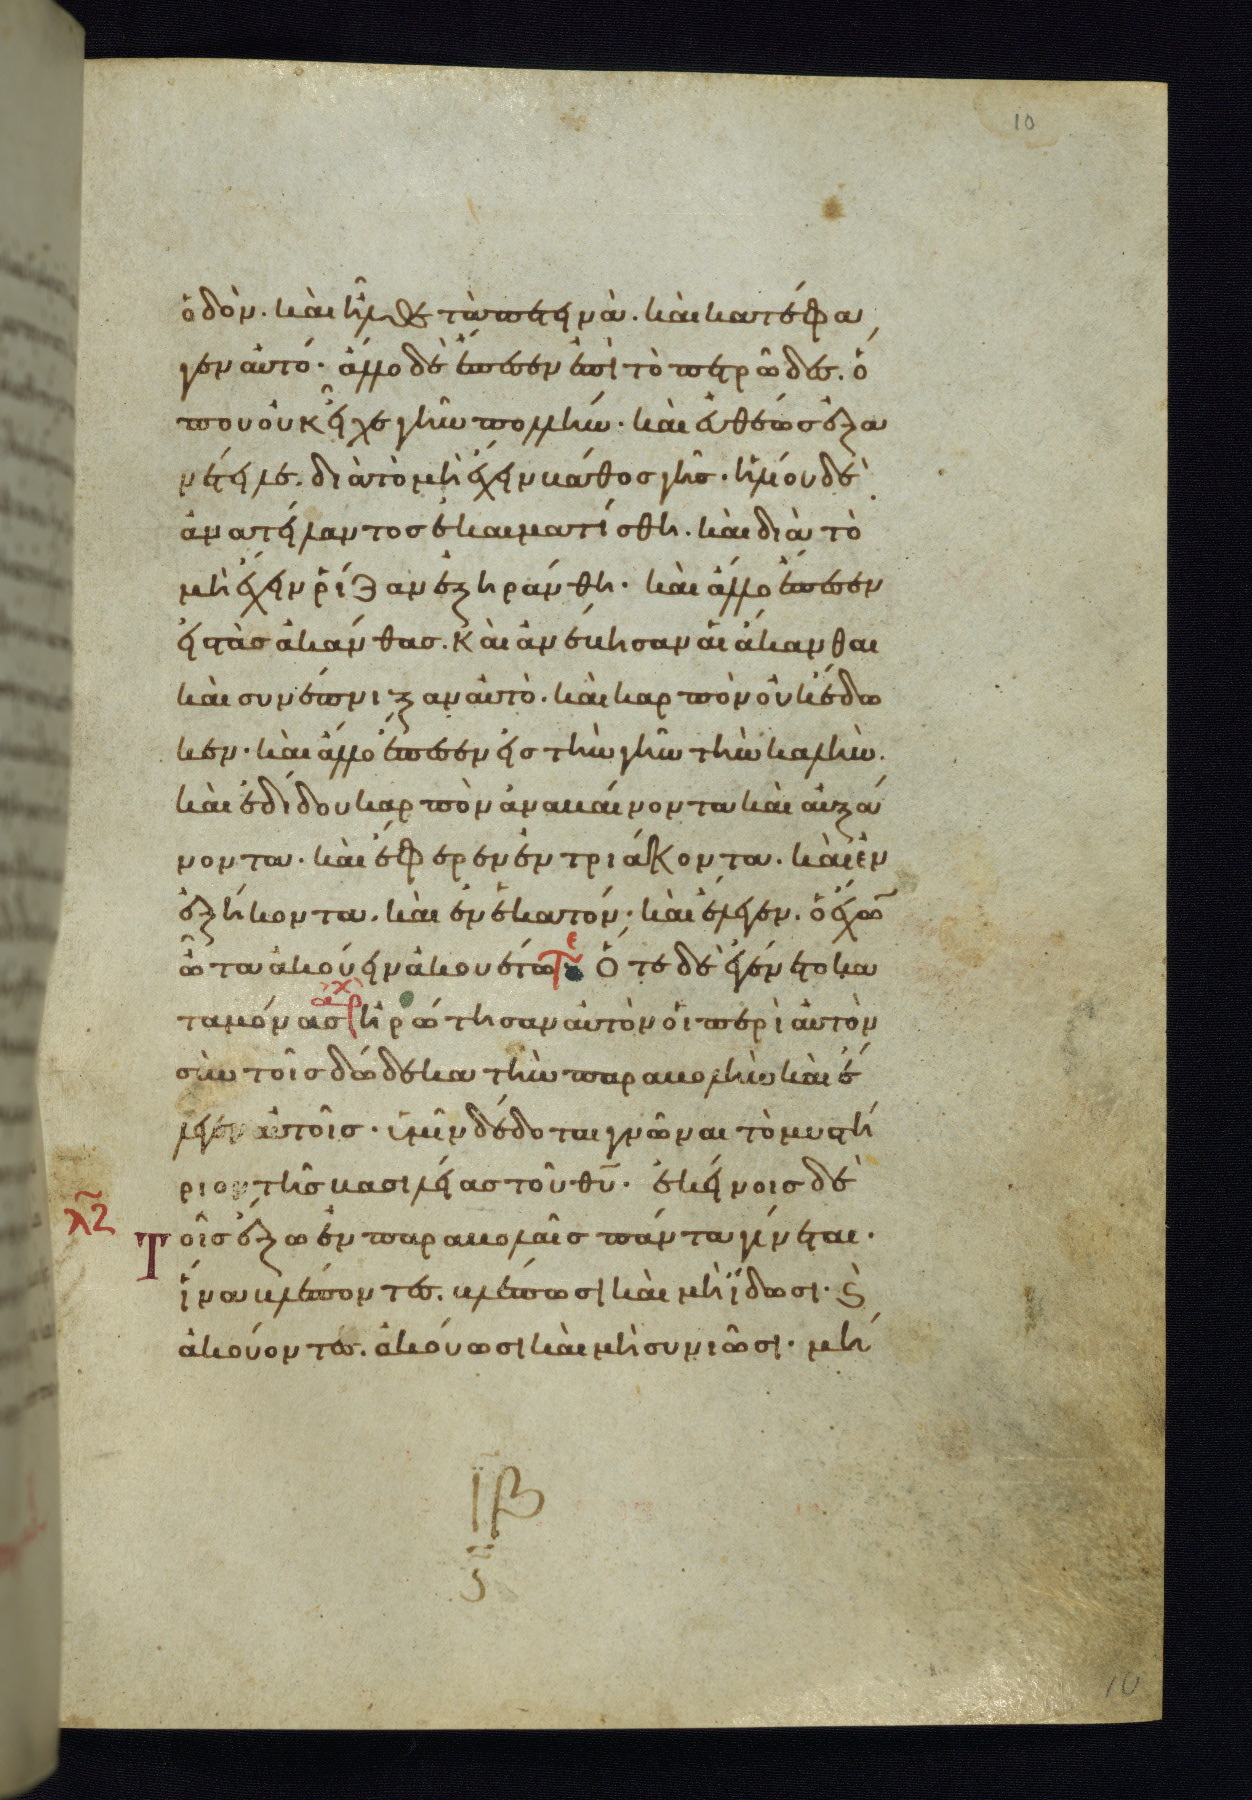 10
ὁδόν. καὶ ἦλθε τὰ πετεινὰ. καὶ κατέφα
γεν αὐτό. ἄλλο δὲ ἔπεσεν ἐπὶ τὸ πετρῶδες. ὅ
που οὐκ εἶχε γῆν πολλήν. καὶ εὐθέως ἐξα
νέτειλε. διὰ τὸ μὴ ἔχειν βάθος γῆς. ἡλίου δὲ
ἀνατείλαντος ἐκαυματίσθη. καὶ διὰ τὸ
μὴ ἔχειν ῥίζαν ἐξηράνθη. καὶ ἄλλο ἔπεσεν
εἰς τὰς ἀκάνθας. καὶ ἀνέβησαν αἱ ἄκανθαι
καὶ συνέπνιξαν αὐτὸ. καὶ καρπὸν οὐκ ἔδω
κεν. καὶ ἄλλο ἔπεσεν εἰς τὴν γῆν τὴν καλὴν.
καὶ ἐδίδου καρπὸν ἀναβαίνοντα καὶ αὐξά
νοντα. καὶ ἔφερεν ἐν τριάκοντα. καὶ ἐν
ἑξήκοντα. καὶ ἐν ἑκατόν. καὶ ἔλεγεν. ὁ ἔχων
ὦτα ἀκούειν ἀκουέτω τε Ὅτε δὲ ἐγένετο κα
ταμόνας ἀρχ ἠρώτησαν αὐτὸν οἱ περὶ αὐτὸν
σὺν τοῖς δώδεκα τὴν παραβολὴν καὶ ἔ
λεγεν αὐτοῖς. ὑμῖν δέδοται γνῶναι τὸ μυστή
ριον τῆς βασιλείας τοῦ θυ. ἐκείνοις δὲ
λζ
Τοῖς ἔξω ἐν παραβολαῖς πάντα γίνεται.
ἵνα βλέποντες. βλέπωσι καὶ μὴ ἴδωσι. ϗ
ἀκούοντες. ἀκούωσι καὶ μὴ συνιῶσι. μή
ιβ
ς
10